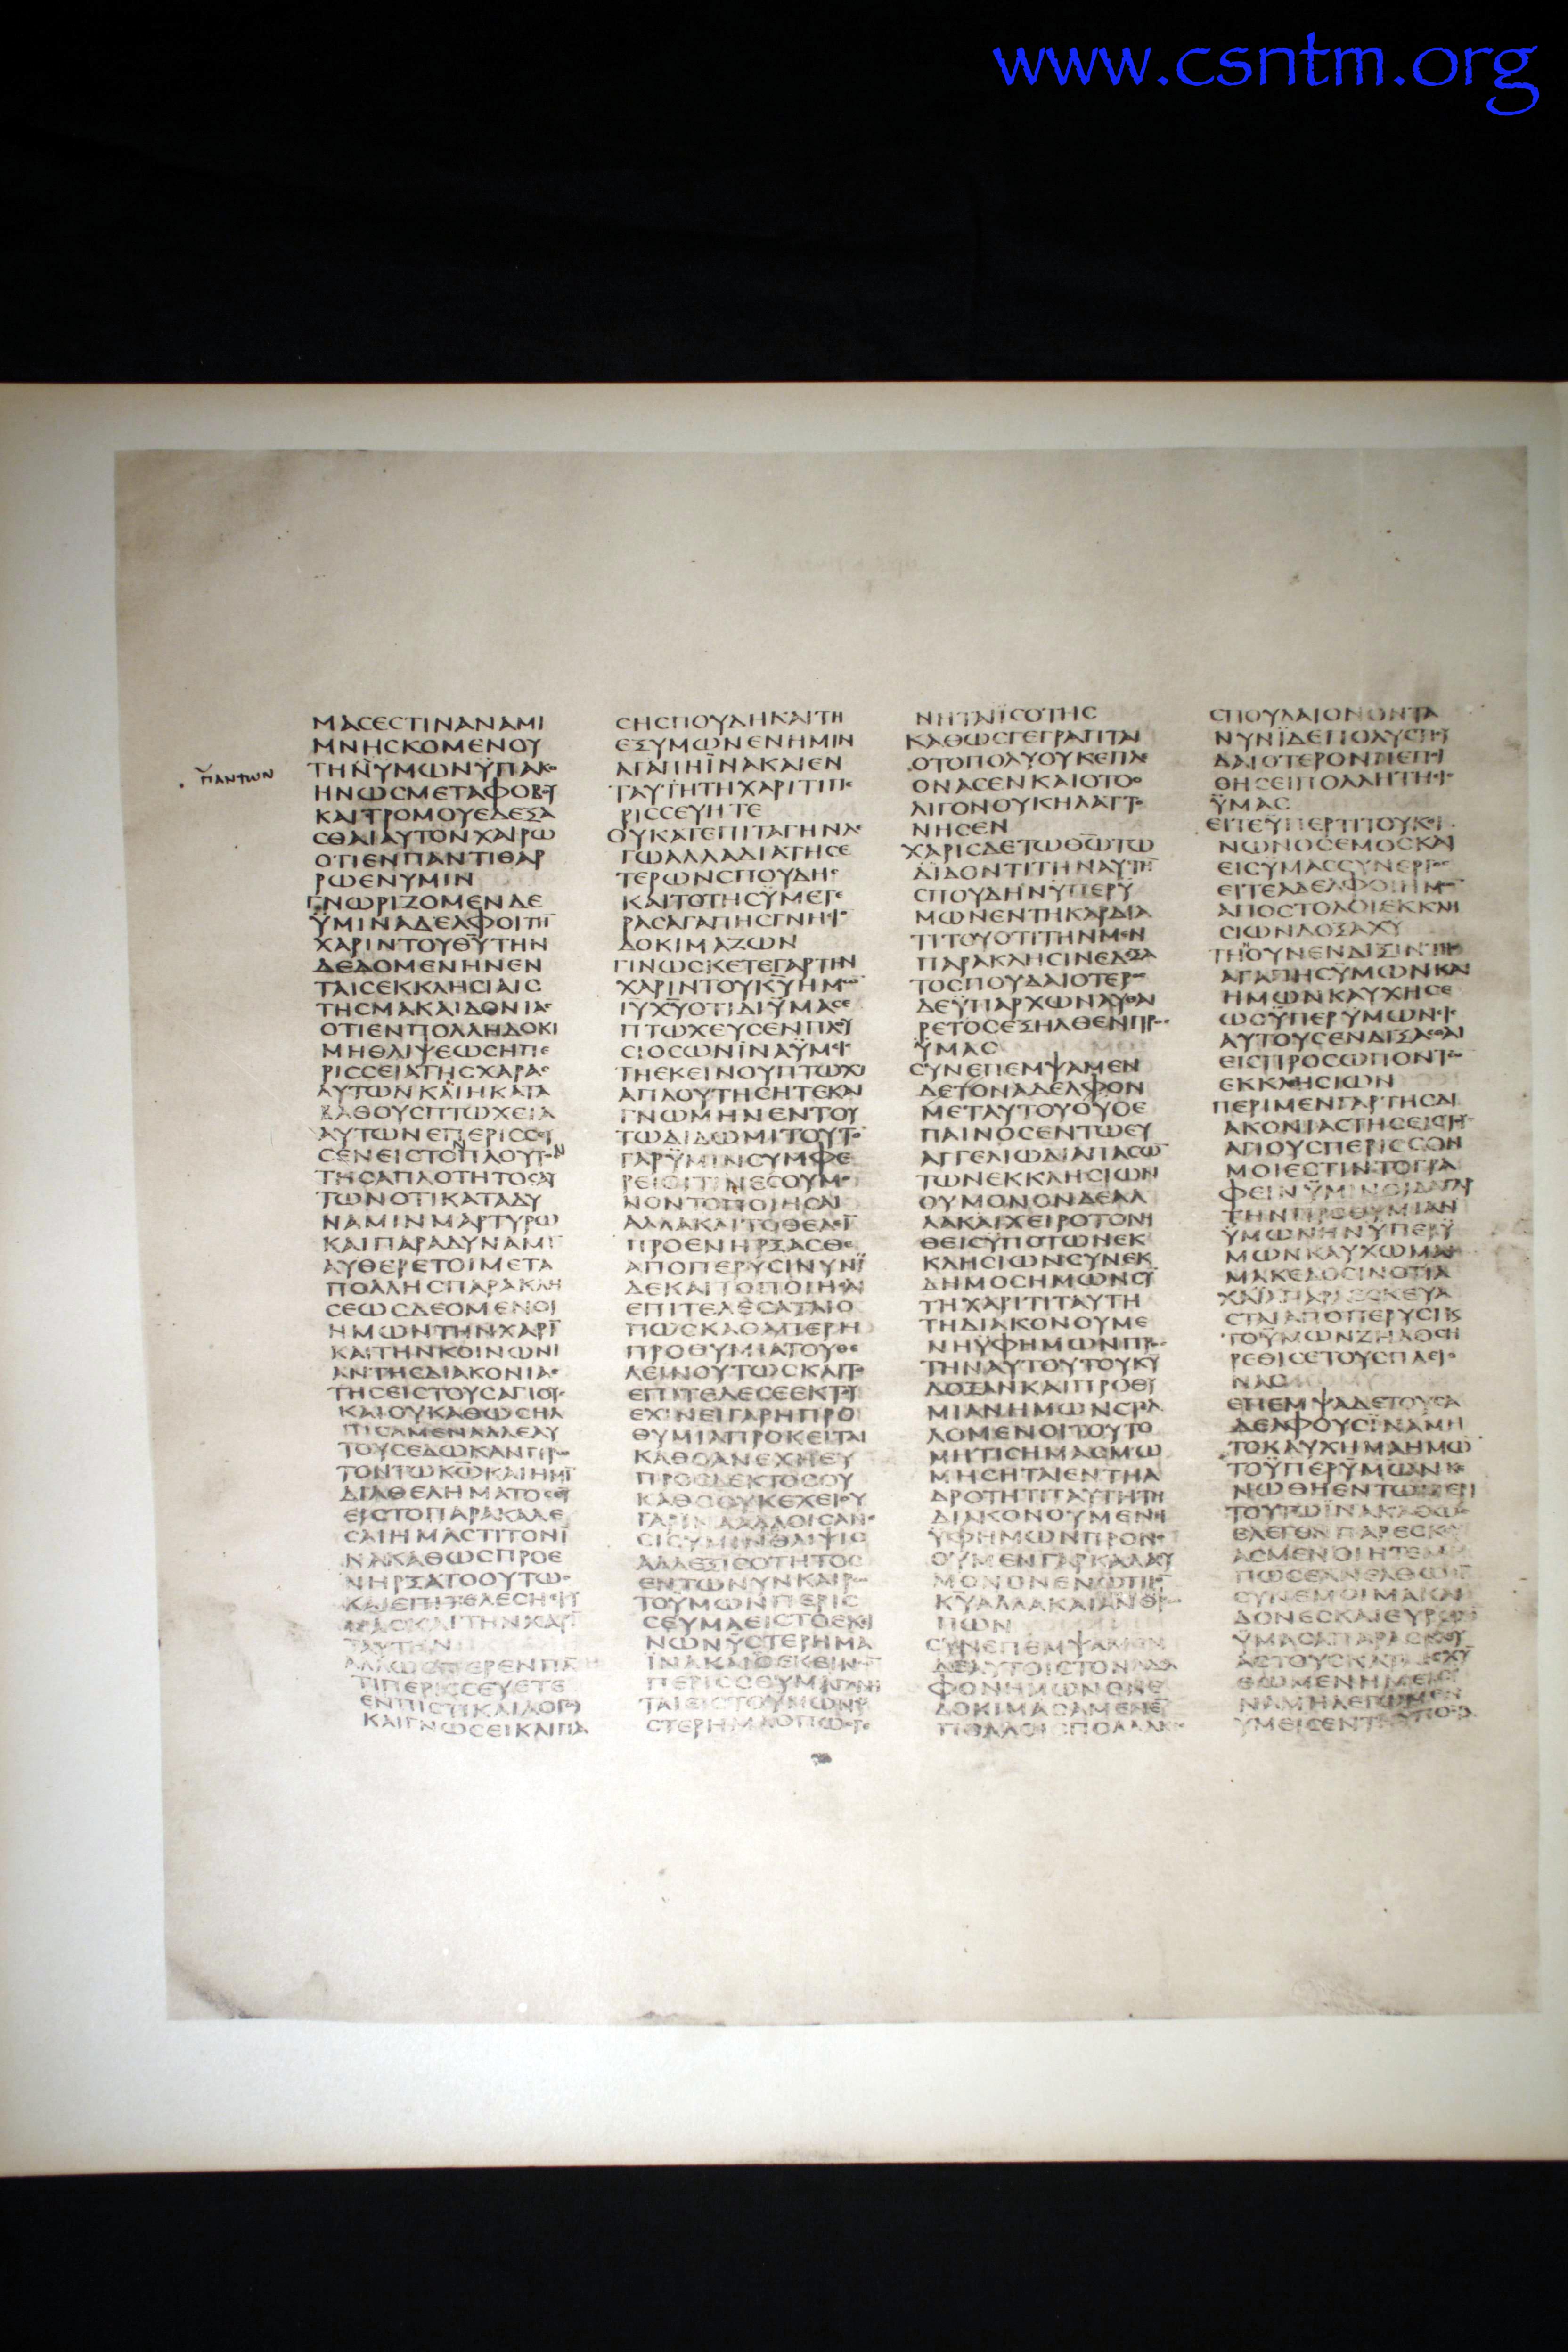 www.csntm.org
παντων
ΜΑCΕCΤΙΝΑΝΑΜΙ
ΜΝΗCΚΟΜΕΝΟΥ
ΤΗΝΫΜΩΝΫΠΑΚΟ
ΗΝΩCΜΕΤΑΦΟΒΟΥ
ΚΑΙΤΡΟΜΟΥΕΔΕΞΑ
CΘΑΙΑΥΤΟΝΧΑΙΡΩ
ΟΤΙΕΝΠΑΝΤΙΘΑΡ
ΡΩΕΝΥΜΙΝ
ΓΝΩΡΙΖΟΜΕΝΔΕ
ΫΜΙΝΑΔΕΛΦΟΙΤΗ
ΧΑΡΙΝΤΟΥΘΥΤΗΝ
ΔΕΔΟΜΕΝΗΝΕΝ
ΤΑΙCΕΚΚΛΗCΙΑΙC
ΤΗCΜΑΚΑΙΔΟΝΙΑC
ΟΤΙΕΝΠΟΛΛΗΔΟΚΙ
ΜΗΘΛΙΨΕΩCΗΠΕ
ΡΙCCΕΙΑΤΗCΧΑΡΑC
ΑΥΤΩΝΚΑΙΗΚΑΤΑ
ΒΑΘΟΥCΠΤΩΧΕΙΑ
ΑΥΤΩΝΕΠΕΡΙCCΕΥ
CΕΝΕΙCΤΟΠΛΟΥΤΟΝ
ΤΗCΑΠΛΟΤΗΤΟCΑΥ
ΤΩΝΟΤΙΚΑΤΑΔΥ
ΝΑΜΙΝΜΑΡΤΥΡΩ
ΚΑΙΠΑΡΑΔΥΝΑΜΙ
ΑΥΘΕΡΕΤΟΙΜΕΤΑ
ΠΟΛΛΗCΠΑΡΑΚΛΗ
CΕΩCΔΕΟΜΕΝΟΙ
ΗΜΩΝΤΗΝΧΑΡΙ
ΚΑΙΤΗΝΚΟΙΝΩΝΙ
ΑΝΤΗCΔΙΑΚΟΝΙΑC
ΤΗCΕΙCΤΟΥCΑΓΙΟΥC
ΚΑΙΟΥΚΑΘΩCΗΛ
ΠΙCΑΜΕΝΑΛΛΕΑΥ
ΤΟΥCΕΔΩΚΑΝΠΡΩ
ΤΟΝΤΩΚΩΚΑΙΗΜΙ
ΔΙΑΘΕΛΗΜΑΤΟCΘΥ
ΕΙCΤΟΠΑΡΑΚΑΛΕ
CΑΙΗΜΑCΤΙΤΟΝΪ
ΝΑΚΑΘΩCΠΡΟΕ
ΝΗΡΞΑΤΟΟΥΤΩC
ΚΑΙΕΠΙΤΕΛΕCΗΕΙΥ
ΜΑCΚΑΙΤΗΝΧΑΡΙ
ΤΑΥΤΗΝ
ΑΛΛΩCΠΕΡΕΝΠΑ
ΤΙΠΕΡΙCCΕΥΕΤΕ
ΕΝΠΙCΤΙΚΑΙΛΟΓΩ
ΚΑΙΓΝΩCΕΙΚΑΙΠΑ
CΗCΠΟΥΔΗΚΑΙΤΗ
ΕΞΥΜΩΝΕΝΗΜΙΝ
ΑΓΑΠΗΪΝΑΚΑΙΕΝ
ΤΑΥΤΗΤΗΧΑΡΙΤΙΠΕ
ΡΙCCΕΥΗΤΕ
ΟΥΚΑΤΕΠΙΤΑΓΗΝΛΕ
ΓΩΑΛΛΑΔΙΑΤΗCΕ
ΤΕΡΩΝCΠΟΥΔΗC
ΚΑΙΤΟΤΗCΫΜΕΤΕ
ΡΑCΑΓΑΠΗCΓΝΗCΙ
ΔΟΚΙΜΑΖΩΝ
ΓΙΝΩCΚΕΤΕΓΑΡΤΗΝ
ΧΑΡΙΝΤΟΥΚΥΗΜΩ
ΙΥΧΥΟΤΙΔΙΫΜΑCΕ
ΠΤΩΧΕΥCΕΝΠΛΟΥ
CΙΟCΩΝΪΝΑΫΜΕΙC
ΤΗΕΚΕΙΝΟΥΠΤΩΧΙ
ΑΠΛΟΥΤΗCΗΤΕΚΑΙ
ΓΝΩΜΗΝΕΝΤΟΥ
ΤΩΔΙΔΩΜΙΤΟΥΤΟ
ΓΑΡΫΜΙΝCΥΜΦΕ
ΡΕΙΟΙΤΙΝΕCΟΥΜΟ
ΝΟΝΤΟΠΟΙΗCΑΙ
ΑΛΛΑΚΑΙΤΟΘΕΛΕΙ
ΠΡΟΕΝΗΡΞΑCΘΕ
ΑΠΟΠΕΡΥCΙΝΥΝΪ
ΔΕΚΑΙΤΟΠΟΙΗCΑΙ
ΕΠΙΤΕΛΕCΑΤΑΙΟ
ΠΩCΚΑΘΑΠΕΡΗ
ΠΡΟΘΥΜΙΑΤΟΥΘΕ
ΛΕΙΝΟΥΤΩCΚΑΙΤΟ
ΕΠΙΤΕΛΕCΕΕΚΤΟΥ
ΕΧΙΝΕΙΓΑΡΗΠΡΟ
ΘΥΜΙΑΠΡΟΚΕΙΤΑΙ
ΚΑΘΟΑΝΕΧΗΕΥ
ΠΡΟCΔΕΚΤΟCΟΥ
ΚΑΘΟΟΥΚΕΧΕΙΟΥ
ΓΑΡΙΝΑΑΛΛΟΙCΑΝΕ
CΙCΫΜΙΝΘΛΙΨΙC
ΑΛΛΕΞΙCΟΤΗΤΟC
ΕΝΤΩΝΥΝΚΑΙΡΩ
ΤΟΫΜΩΝΠΕΡΙC
CΕΥΜΑΕΙCΤΟΕΚΙ
ΝΩΝΫCΤΕΡΗΜΑ
ΪΝΑΚΑΙΤΟΕΚΕΙΝΩ
CΤΕΡΗΜΑΟΠΩCΓΕ
ΝΗΤΑΙΪCΟΤΗC
ΚΑΘΩCΓΕΓΡΑΠΤΑΙ
ΟΤΟΠΟΛΥΟΥΚΕΠΛΕ
ΟΝΑCΕΝΚΑΙΟΤΟΟ
ΛΙΓΟΝΟΥΚΗΛΑΤΤΟ
ΝΗCΕΝ
ΧΑΡΙCΔΕΤΩΘΩΤΩ
ΔΙΔΟΝΤΙΤΗΝΑΥΤΗ
CΠΟΥΔΗΝΫΠΕΡΫ
ΜΩΝΕΝΤΗΚΑΡΔΙΑ
ΤΙΤΟΥΟΤΙΤΗΝΜΕΝ
ΠΑΡΑΚΛΗCΙΝΕΔΕΞΑ
ΤΟCΠΟΥΔΑΙΟΤΕΡΟC
ΔΕΫΠΑΡΧΩΝΑΥΘΑΙ
ΡΕΤΟCΕΞΗΛΘΕΝΠΡΟC
ΫΜΑC
CΥΝΕΠΕΜΨΑΜΕΝ
ΔΕΤΟΝΑΔΕΛΦΟΝ
ΜΕΤΑΥΤΟΥΟΥΟΕ
ΠΑΙΝΟCΕΝΤΩΕΥ
ΑΓΓΕΛΙΩΔΙΑΠΑCΩ
ΤΩΝΕΚΚΛΗCΙΩΝ
ΟΥΜΟΝΟΝΔΕΑΛ
ΛΑΚΑΙΧΕΙΡΟΤΟΝΗ
ΘΕΙCΫΠΟΤΩΝΕΚ
ΚΛΗCΙΩΝCΥΝΕΚ
ΔΗΜΟCΗΜΩΝCΥ
ΤΗΧΑΡΙΤΙΤΑΥΤΗ
ΤΗΔΙΑΚΟΝΟΥΜΕ
ΝΗΫΦΗΜΩΝΠΡΟC
ΤΗΝΑΥΤΟΥΤΟΥΚΥ
ΔΟΞΑΝΚΑΙΠΡΟΘΥ
ΜΙΑΝΗΜΩΝCΤΕΛ
ΛΟΜΕΝΟΙΤΟΥΤΟ
ΜΗΤΙCΗΜΑCΜΩ
ΜΗCΗΤΑΙΕΝΤΗΑ
ΔΡΟΤΗΤΙΤΑΥΤΗΤΗ
ΔΙΑΚΟΝΟΥΜΕΝΗ
ΫΦΗΜΩΝΠΡΟΝΟ
ΟΥΜΕΝΓΑΡΚΑΛΑΟΥ
ΜΟΝΟΝΕΝΩΠΙΟ
ΚΥΑΛΛΑΚΑΙΑΝΘΡΩ
ΠΩΝ
CΥΝΕΠΕΜΨΑΜΕΝ
ΔΕΑΥΤΟΙCΤΟΝΑΔΕΛ
ΦΟΝΗΜΩΝΟΝΕ
ΔΟΚΙΜΑCΑΜΕΝΕ
ΠΟΛΛΟΙCΠΟΛΛΑΚΙC
CΠΟΥΔΑΙΟΝΟΝΤΑ
ΝΥΝΪΔΕΠΟΛΥCΠΟΥ
ΔΑΙΟΤΕΡΟΝΠΕΠΟΙ
ΘΗCΕΙΠΟΛΛΗΤΗΕΙC
ΫΜΑC
ΕΙΤΕΫΠΕΡΤΙΤΟΥΚΟΙ
ΝΩΝΟCΕΜΟCΚΑΙ
ΕΙCΫΜΑCCΥΝΕΡΓΟC
ΕΙΤΕΑΔΕΛΦΟΙΗΜΩ
ΑΠΟCΤΟΛΟΙΕΚΚΛΗ
CΙΩΝΔΟΞΑΧΥ
ΤΗΟΥΝΕΝΔΙΞΙΝΤΗC
ΑΓΑΠΗCΫΜΩΝΚΑΙ
ΗΜΩΝΚΑΥΧΗCΕ
ΩCΫΠΕΡΫΜΩΝΕΙC
ΑΥΤΟΥCΕΝΔΙΞΑCΘΑΙ
ΕΙCΠΡΟCΩΠΟΝΤΩ
ΕΚΚΛΗCΙΩΝ
ΠΕΡΙΜΕΝΓΑΡΤΗCΔΙ
ΑΚΟΝΙΑCΤΗCΕΙCΤΟΥC
ΑΓΙΟΥCΠΕΡΙCCΟΝ
ΜΟΙΕCΤΙΝΤΟΓΡΑ
ΦΕΙΝΫΜΙΝΟΙΔΑΓΑΡ
ΤΗΝΠΡΟΘΥΜΙΑΝ
ΫΜΩΝΗΝΫΠΕΡΫ
ΜΩΝΚΑΥΧΩΜΑΙ
ΜΑΚΕΔΟCΙΝΟΤΙΑ
ΧΑΪΑΠΑΡΕCΚΕΥΑ
CΤΑΙΑΠΟΠΕΡΥCΙΚΑΙ
ΤΟΫΜΩΝΖΗΛΟCΗ
ΡΕΘΙCΕΤΟΥCΠΛΕΙΟ
ΝΑC
ΕΠΕΜΨΑΔΕΤΟΥCΑ
ΔΕΛΦΟΥCΪΝΑΜΗ
ΤΟΚΑΥΧΗΜΑΗΜΩ
ΤΟΫΠΕΡΫΜΩΝΚΕ
ΝΩΘΗΕΝΤΩΜΕΡΙ
ΤΟΥΤΩΪΝΑΚΑΘΩC
ΕΛΕΓΟΝΠΑΡΕCΚΕΥ